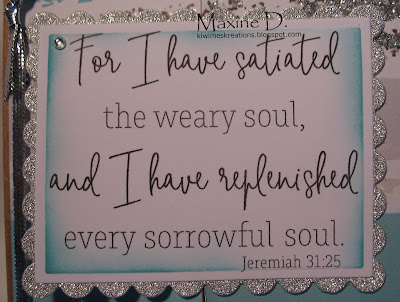 Maxine D.
kiwimeskreations.blogspot.com
For I have satiated
the weary soul,
and I have replenished
every sorrowful soul.
Jeremiah 31:25